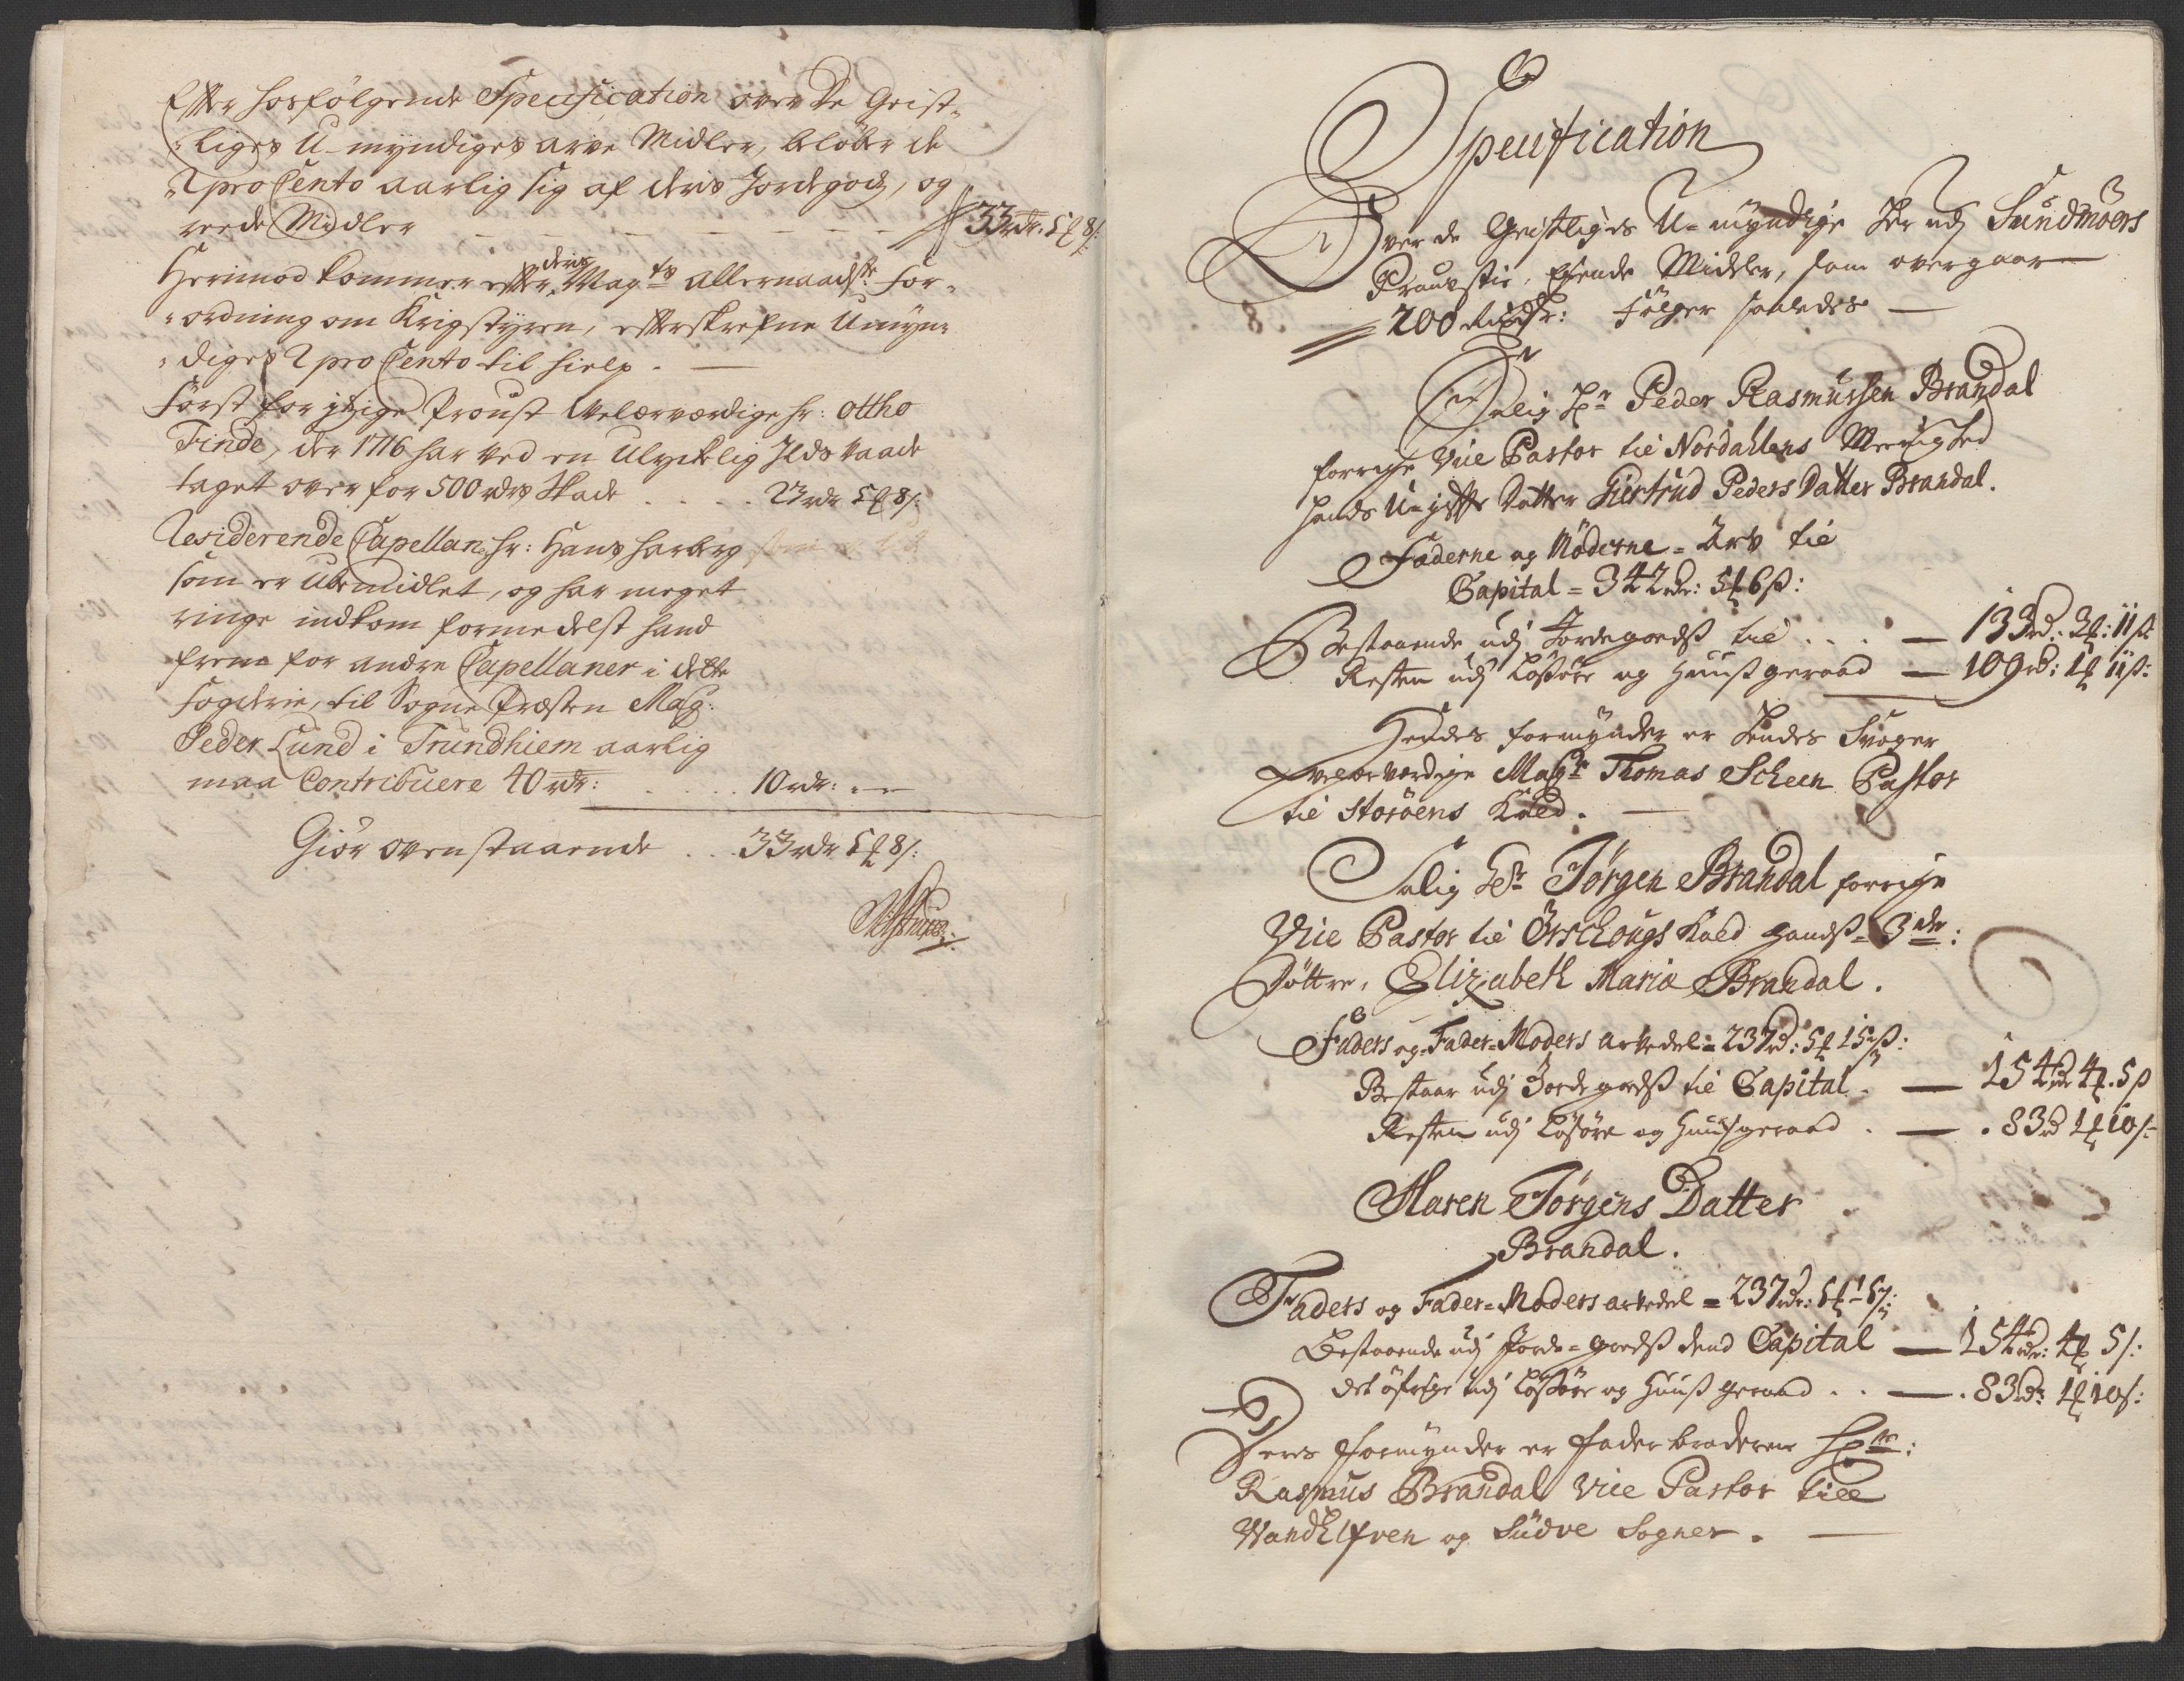 Efter hosfølgende Specification over De Geist-
-liges U-myndiges arve Midler, beløber de
2 pro Cento aarlig sig af deris Jordegods, og
reede Midler - - - - - - - 33 rdr: 5 ₰ 8/:
Herimod kommer efter deris Mayts Allernaadste For-
-ordning om Krigstyren, efterskrefne Umyn-
-diges 2 pro Cento til hielp. —
Først for ##ige Proust Welærværdige hr: Ottho
Finde, der 1716 har ved en Ulyckelig Ilds Vaade
taget over for 500 rdrs Skade . . . . 23 rdr 5 ₰ 8/:
Residerende Capellan hr: Hans Harberg
som er Ubemidlet, og har meget
ringe indkom formedelst hand
frem for andre Capellaner i dette
Fogderie, til Sogne Præsten Mag:
Peder Lund i Trundhiem aarlig
maa Contribuere 40 rdr: . . . . 10 rdr: -
Giør ovenstaaende . . 33 rdr 5 ₰ 8/:
Specification
Over de Geistliges U-myndige Her udj Sundmøers
Prouvstie, Eyende Midler, som overgaar
200 Rixdr: Følger saaledes —
Salig Hr Peder Rasmussen Brandal
forrige Vice Pastor til Nordahlens Menighed
hands U-gifte Datter Giertrud Peders Datter Brandal.
Fæderne og Møderne-Arv til
Capital = 342 rdr: 5 ₰ 6 ß:
Bestaaende udj Jordegodß til . . . — 133 rd: 3 ₰: 11 ß
Resten udj Løßøre og Huußgeraad — 109 rd: 1 ₰ 11 ß:
Hendes formynder er hendes Svoger
Velærværdige Magr Thomas Scheen Pastor
til Storøens Kald. —
Salig Hr Jørgen Brandal forrige
Vice Pastor til Ørschougs Kald handß 3de:
Døttre, Elizabeth Maria Brandal.
Faders og Fader-Moders Arvedel = 237 rd: 5 ₰ 15 ß:
Bestaar udj Jordegodß til Capital . — 154 rdr 4 ₰. 5 ß
Resten udj Løsøre og Huußgeraad . — . 83 rd 1 ₰ 10/:
Maren Jørgens Datter
Brandal.
Faders og Fader-Moders arvedel = 237 rdr: 5 ₰ 15/:
Bestaaende udj Jorde-godß dend Capital — 154 rdr: 4 ₰ 5/:
det øfrige udj Løßøre og Huuß geraad . . — . 83 rdr 1 ₰ 10/:
Deres Formynder er Faderbroderen Hr:
Rasmus Brandal Vice Pastor till
Wandelfven og Südve Sogner. —